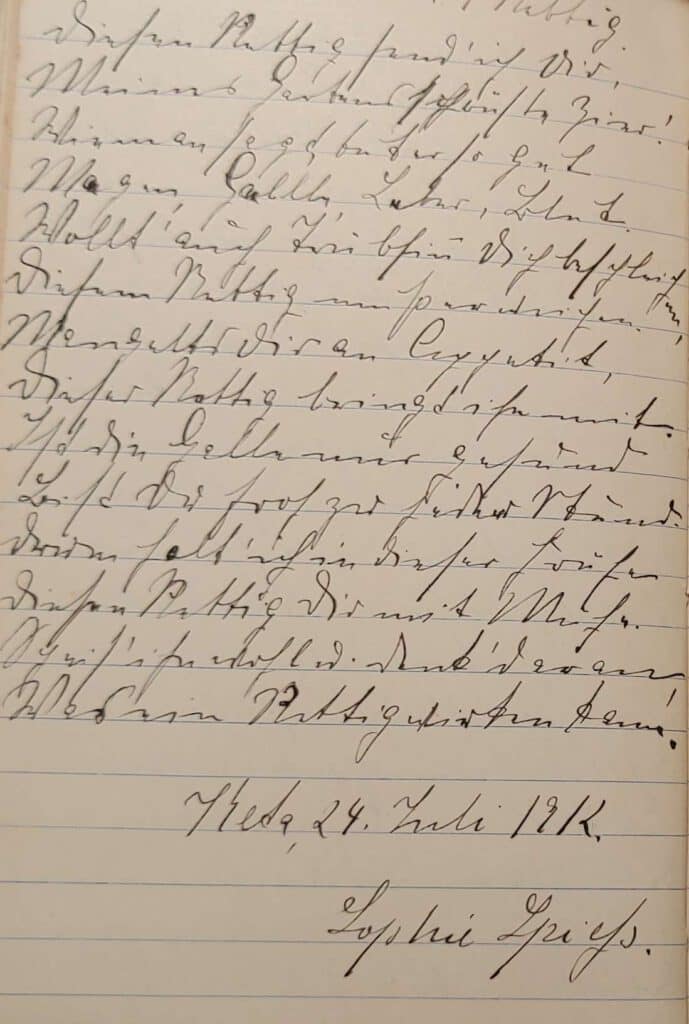 Rettig.
Diesen Rettig send' ich Dir,
Meines Gartens schönste Zier!
Wie man sagt, tut er so gut
Magen, Galle, Leber, Blut.
Wollt' auch Trübsin Dich beschleichen,
Diesem Rettig muß er weichen.
Mangelts Dir an Appetit,
Dieser Rettig bringt ihn mit.
Ist die Galle nur gesund
Bist Du froh zu jeder Stund.
Drum holt' ich in dieser Frühe
Diesen Rettig Dir mit Mühe.
Speis' ihn wohl u. denk' daran,
Was ein Rettig wirken kann.
Keta, 24. Juli 1912.
Sophie Spieß.